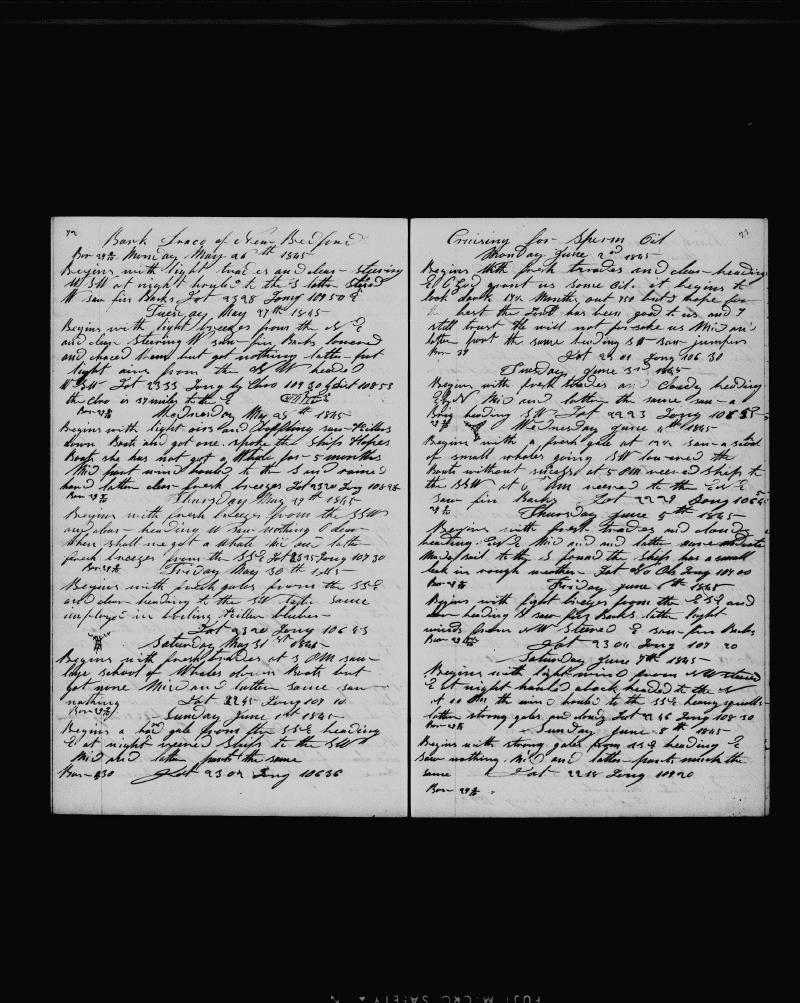 72
Bark Draco of New Bedford
Bar 29 Monday May 26th 1845
Begins with light trades and clear steering
WSW at night hauled to the S latter steerd
W saw fin Backs Lat 2328 Long 10950
Tuesday May 27th 1845
Begins with light breezes from the NE
and clear steering W saw fin Backs lowered
and chaced them but got nothing latter part
light airs from the headed
WSW Lat 2333 Long by Chro 109 30 10853
the Chro is 37 miles to the E
Wednesday May 28th 1845
Begins with light airs and saw Killers
down Boats and got one spoke the Ship Hopes
Boats she has not got a Whale for 5 months
Mid part wind hauled to the S and rained
hard latter clear fresh breezes Lat 2320 Long 10828
Bar 29 Thursday May 29th 1845
Begins with fresh breezes from the SSW
and clear heading W saw nothing O dear
when shall we get a Whale Mid and latter
fresh breezes from the SSE Lat 2325 Long 107 30
Bar 29 Friday May 30th 1845
Begins with fresh gales from the SSE
and clear heading to the SW latter same
employed in boiling Killers blubber
Lat 2320 Long 106 43
Saturday May 31st 1845
Begins with fresh trades at 3 PM saw
large school of Whales down Boats but
got none Mid and latter same saw
nothing Lat 2245 Long 107 10
Bar 29 Sunday June 1st 1845
Begins a hard gale from the SSE heading
E at night veered Ships to the SW
Mid and latter parts the same
Bar 30 Lat 2304 Long 10636
73
Cruising for Sperm Oil
Monday June 2nd 1845
Begins with fresh trades and clear heading
E O God grant us some Oil it begins to
look dark 17½ Months out 750 but I hope for
the best the Lord has been good to us and I
still trust He will not forsake us Mid and
latter part the same heading SW saw jumpers
Lat 23 01 Long 106 30
Tuesday June 3rd 1845
Begins with fresh trades and Cloudy heading
EbyN Mid and latter the same saw a
Brig heading SW Lat 2223 Long
Wednesday June 4th 1845
Begins with a fresh gale at saw a
of small whales going SW lowered the
Boats without success at 5 PM veered ships to
the SSW at 6 PM veered to the
saw fin Backs Lat 2228 Long
Thursday June 5th 1845
Begins with fresh trades and cloudy
heading Mid and latter more moderate
Made sail to the S found the Ship has a small
leak in rough weather Lat Long 107 00
Bar 29 Friday June 6th 1845
Begins with light breezes from the ESE and
clear heading S saw fin Backs latter light
winds from NW Steered E saw fin Backs
Lat 2304 Long 107 20
Saturday June 7th 1845
Begins with light wind from NW steered
E at night hauled aback headed to the N
at 10 PM the wind hauled to the SSE heavy squalls
latter strong gales and cloudy Lat 2246 Long 108 30
Sunday June 8th 1845
Begins with strong gales from SSE heading E
saw nothing Mid and latter parts much the
same Lat 2218 Long 10920
Bar 29